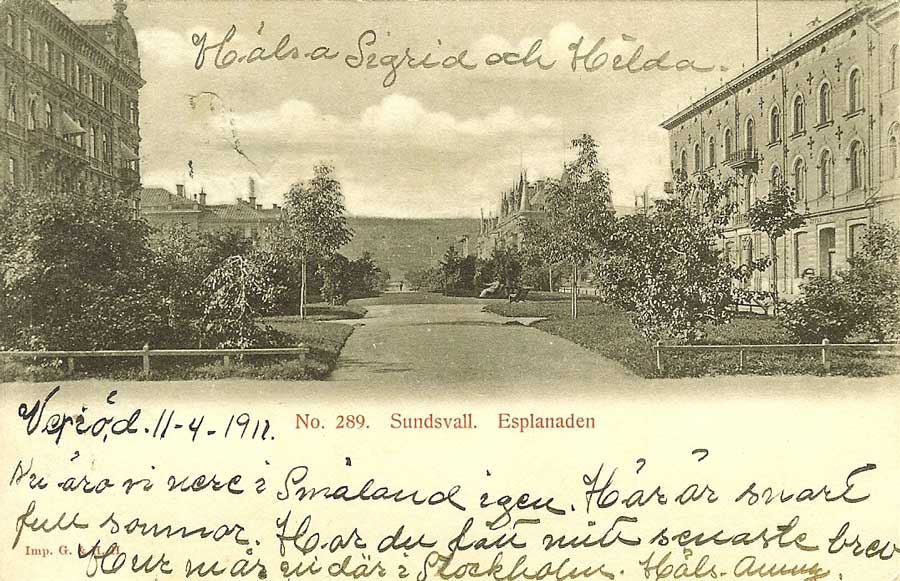 Hälsa Sigrid och Hilda.
No. 289. Sundsvall. Esplanaden
d. 11-4-1911.
Nu äro vi nere i Småland igen. Här är snart
full sommar. Har du fått mitt senaste brev
Imp. G. &
Hur mår ni där i Stockholm. Häls.